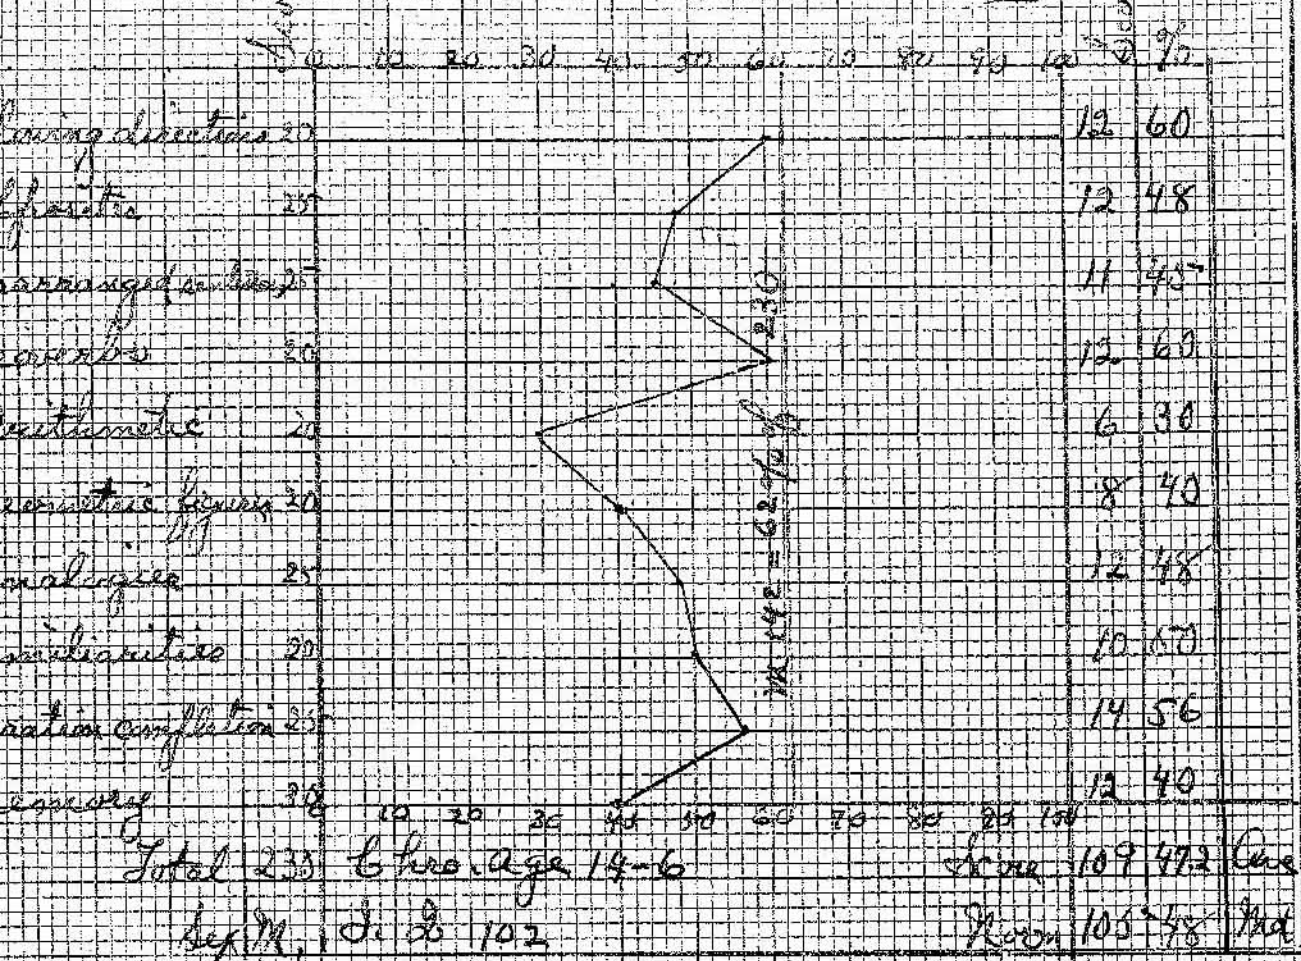 0 10 20 30 40 50 60 70 80 90 100 %
lowing directions 20 12 60
pposite 25 12 48
sarranged 25 11 45
overbs 20 12 60
230
rithmetic 20 6 30
= 62% of
eometric figures 20 8 40
nalogies 25 12 48
miliarities 20 10 50
ration completion 25 14 56
emory 30 12 40
0 10 20 30 40 50 60 70 80 90 100
Total 230 Chro. age 14-6 Score 109 47.2 Ave
Sex M. I. Q 102 Norm 105 48 Md